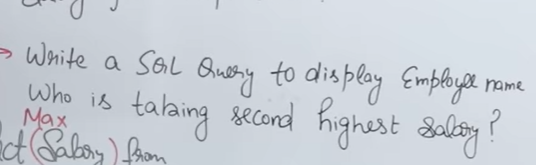 → Write a SQL Query to display Employee name
Who is taking second highest salary?
Max
ct (Salary) from